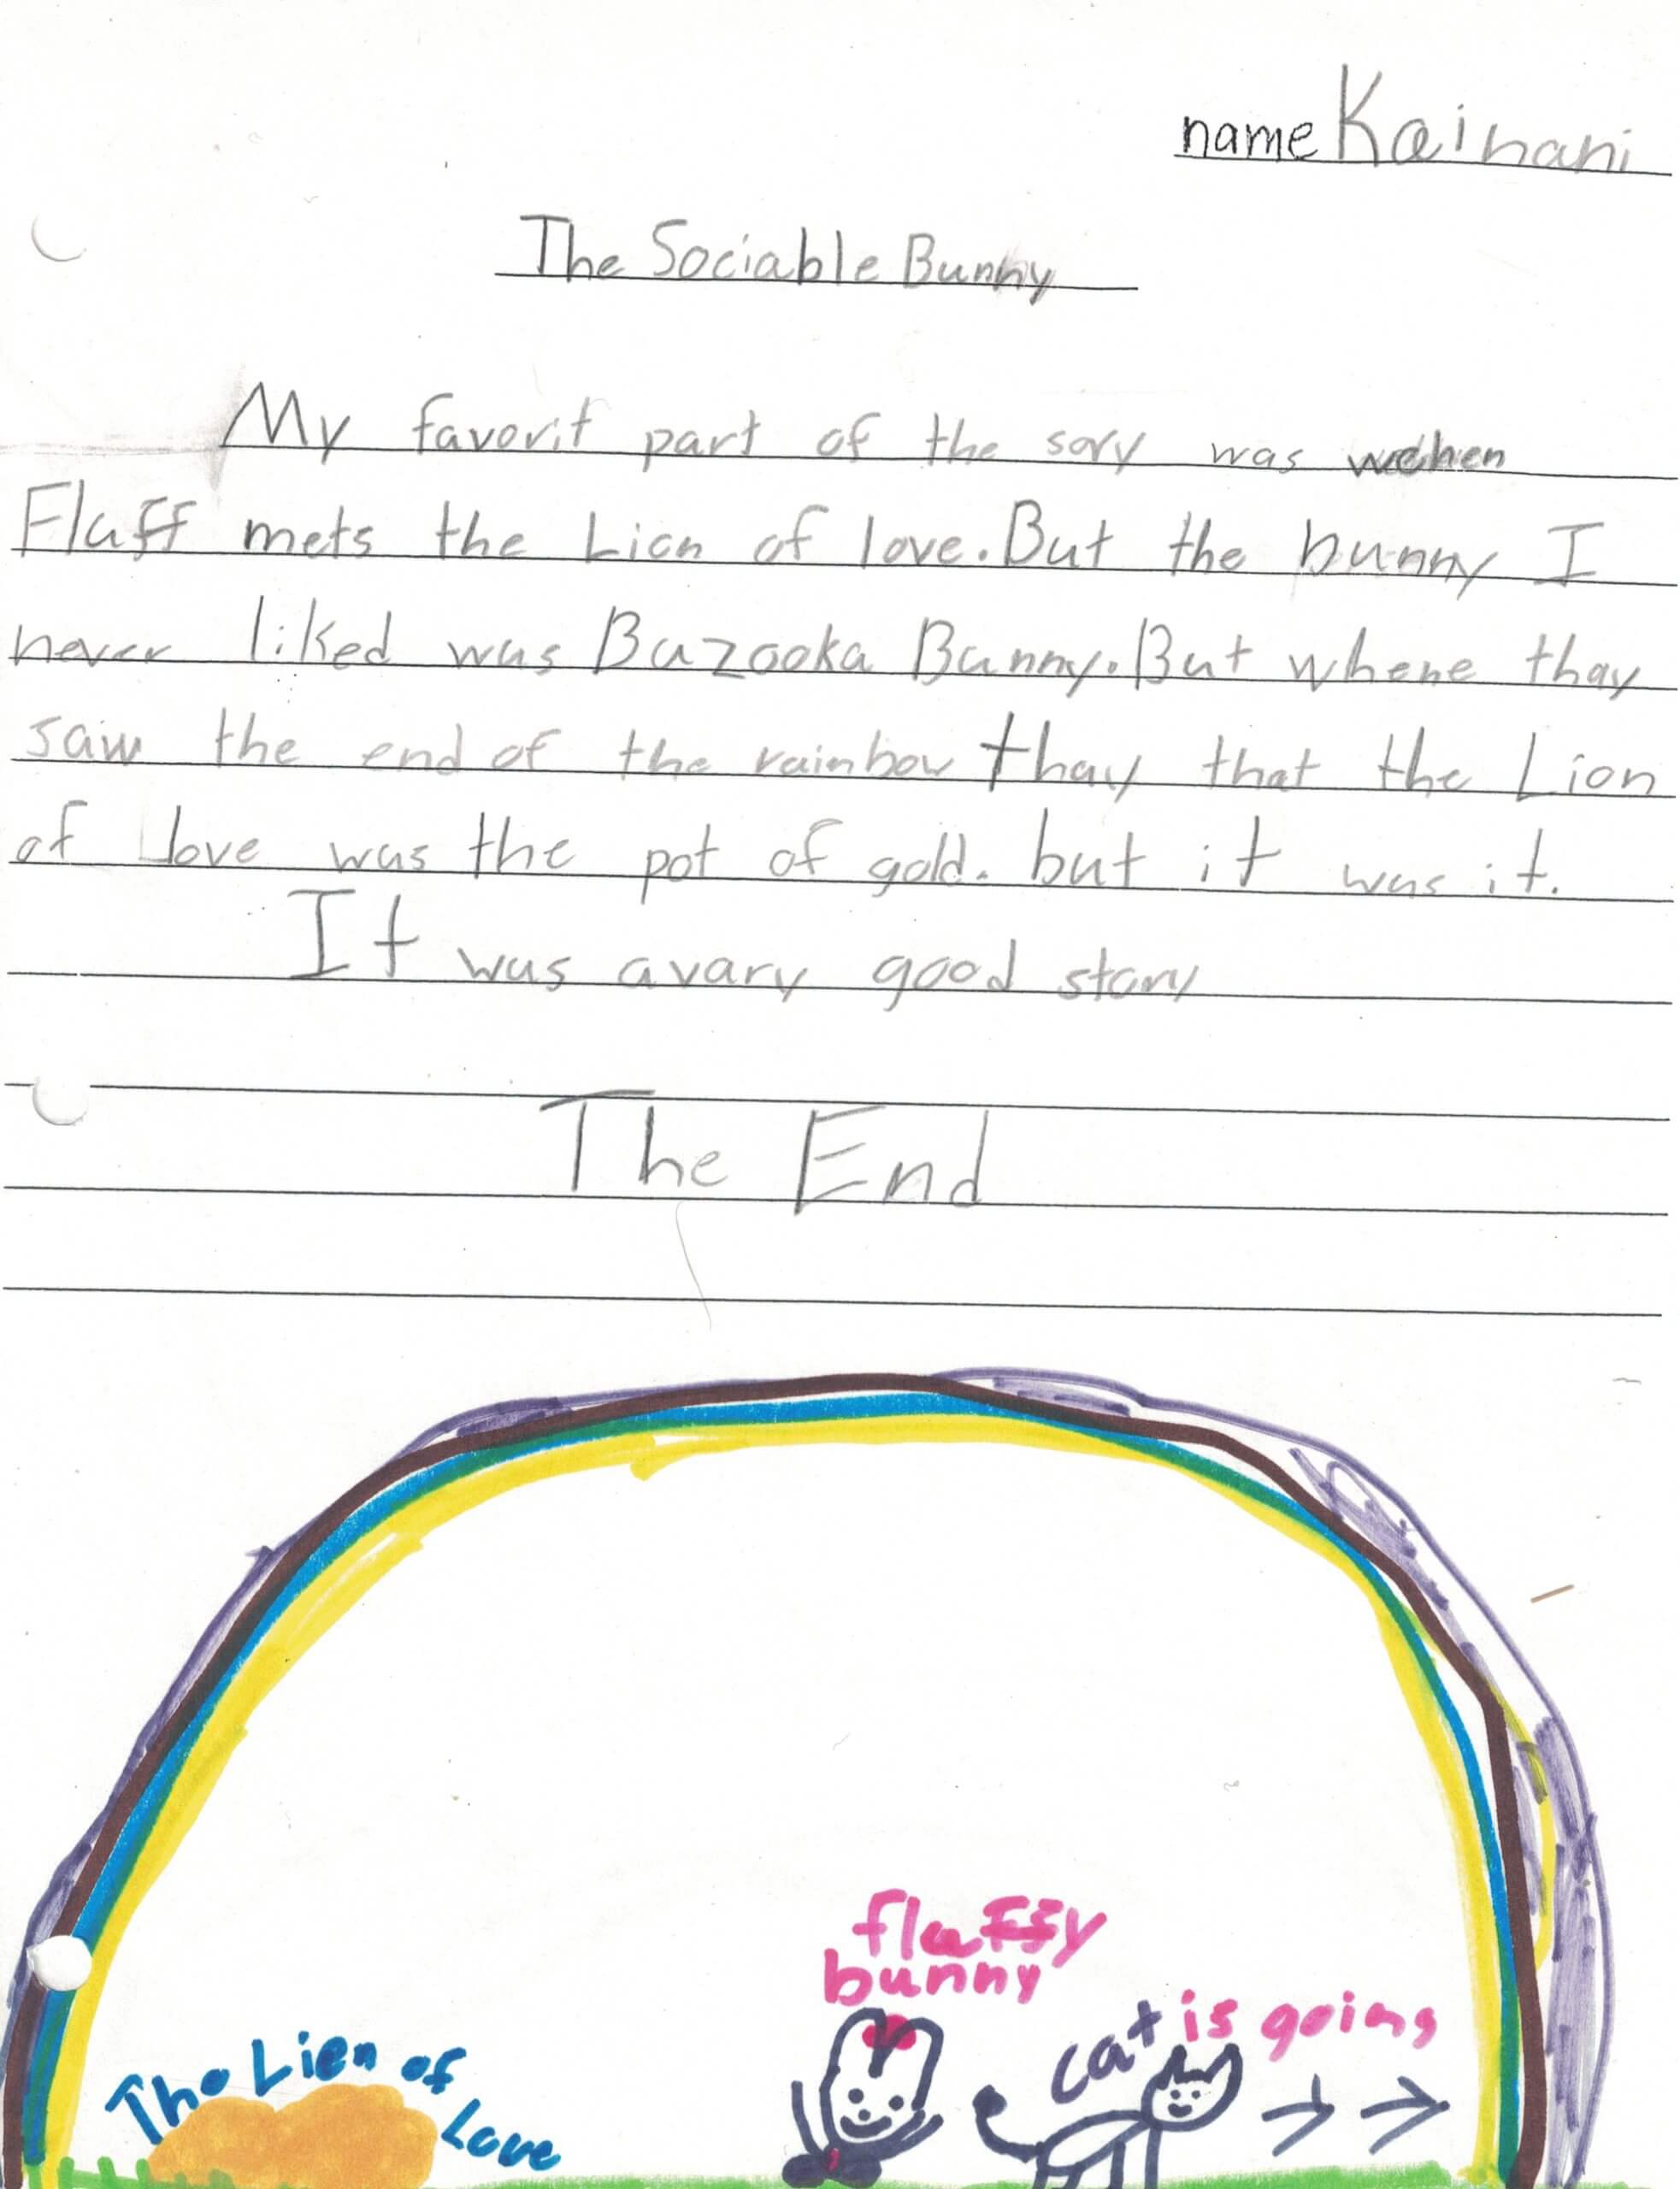 name Kainani
The Sociable Bunny
My favorit part of the sory was wehen
Fluff mets the Lion of love. But the bunny I
never liked was Bazooka Bunny. But whene thay
saw the end of the rainbow thay that the Lion
of love was the pot of gold. but it was it.
It was a vary good story
The End
fluffy
bunny
cat is going
The Lien of
Love